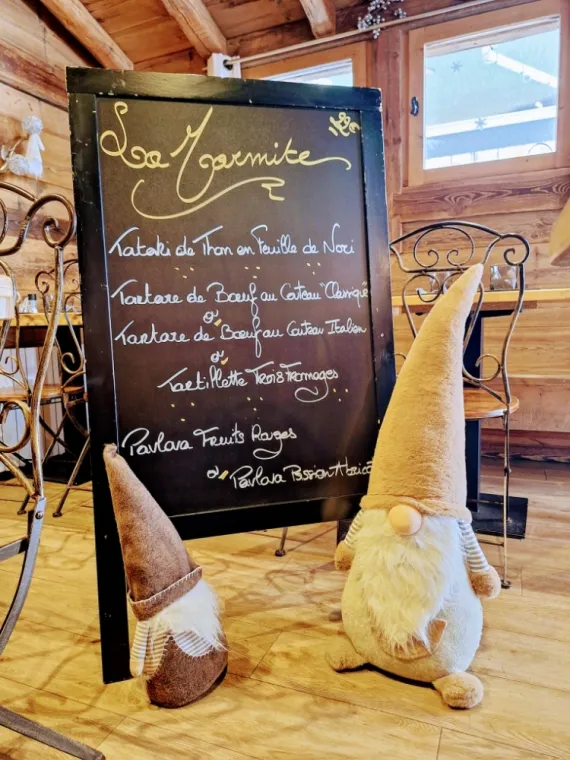 La Marmite
Tataki de Thon en Feuille de Nori
Tartare de Bœuf au Couteau "Classique"
ou
Tartare de Bœuf au Couteau Italien
ou
Tartiflette Trois Fromages
Pavlova Fruits Rouges
ou Pavlova Passion Abricot